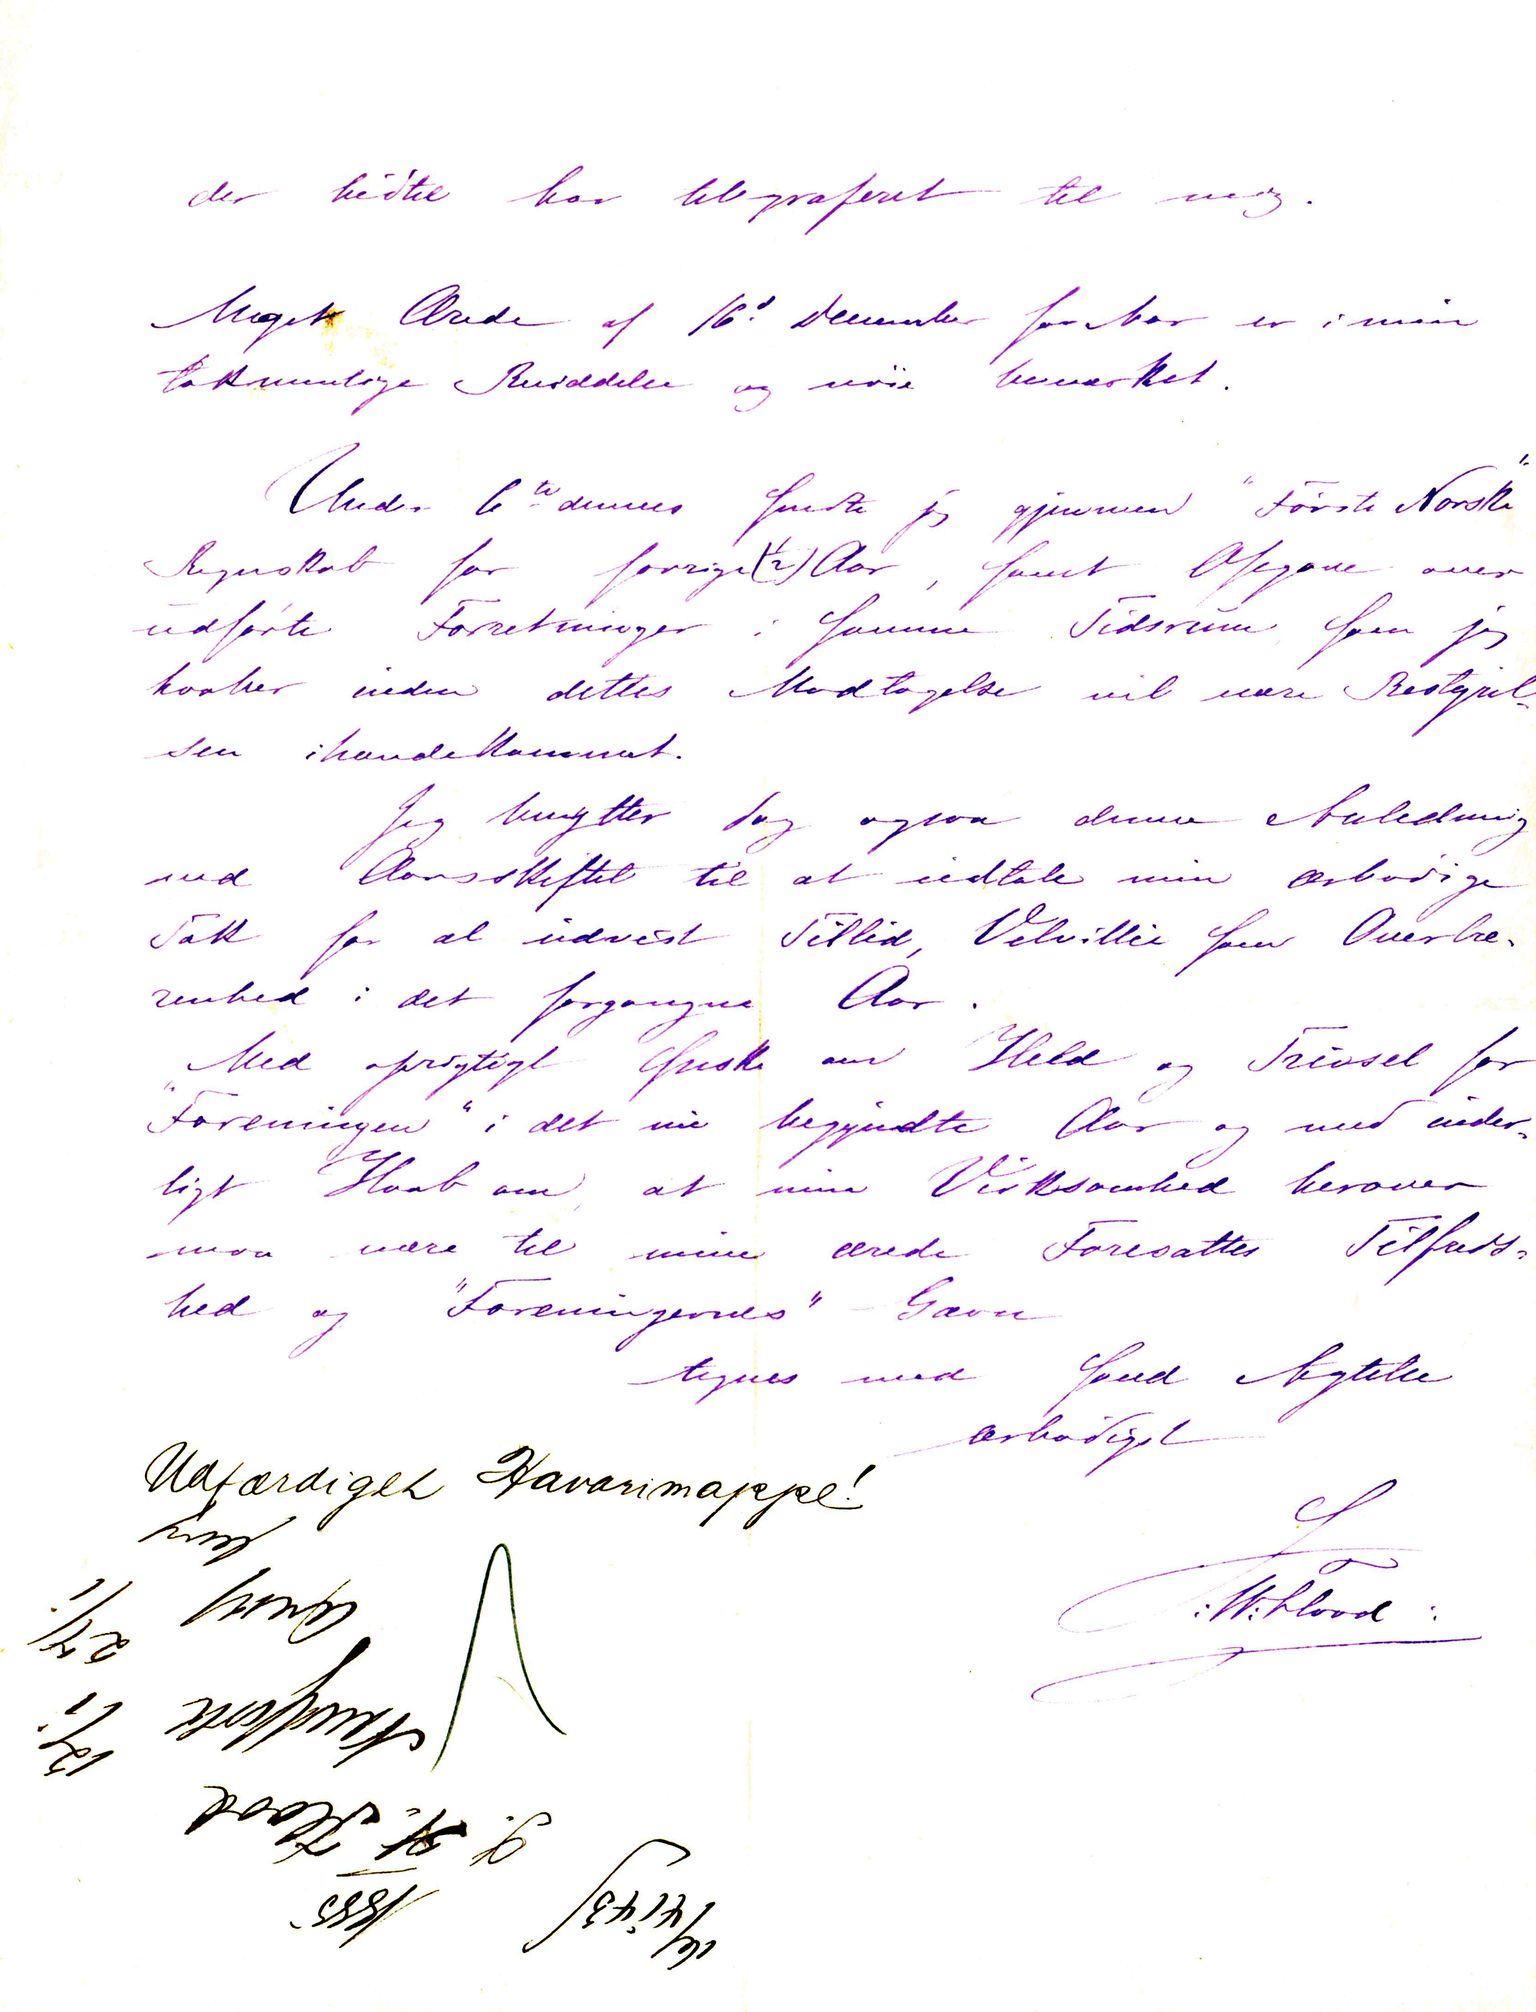 der hidtil har telegraferet til mig.
Meget Ærede af 16d December for Aar er i min
taknemlige Besiddelse og nøie bemærket.
Under 6te dennes sendte jeg gjennem "Første Norske"
Regnskab for forrige (1/2) Aar, samt Opgave over
udførte Forretninger i samme Tidsrum, som jeg
haaber inden dettes Modtagelse vil være Bestyrel-
sen ihændekommet.
Jeg benytter dog ogsaa denne Anledning
ved Aarsskiftet til at udtale min ærbødige
Tak for al udvist Tillid, Velvillie som Overbæ-
renhed i det forgangne Aar.
Med oprigtigt Ønske om Held og Trivsel for
"Foreningen" i det nu begyndte Aar og med inder-
ligt Haab om, at min Virksomhed herover
maa være til mine ærede Foresattes Tilfreds-
hed og "Foreningernes" Gavn
tegnes med sand Agtelse
ærbødigst
:W: Flood:
Udfærdiget Havarimappe!
27/1
12/1
S. W. Flood
1885